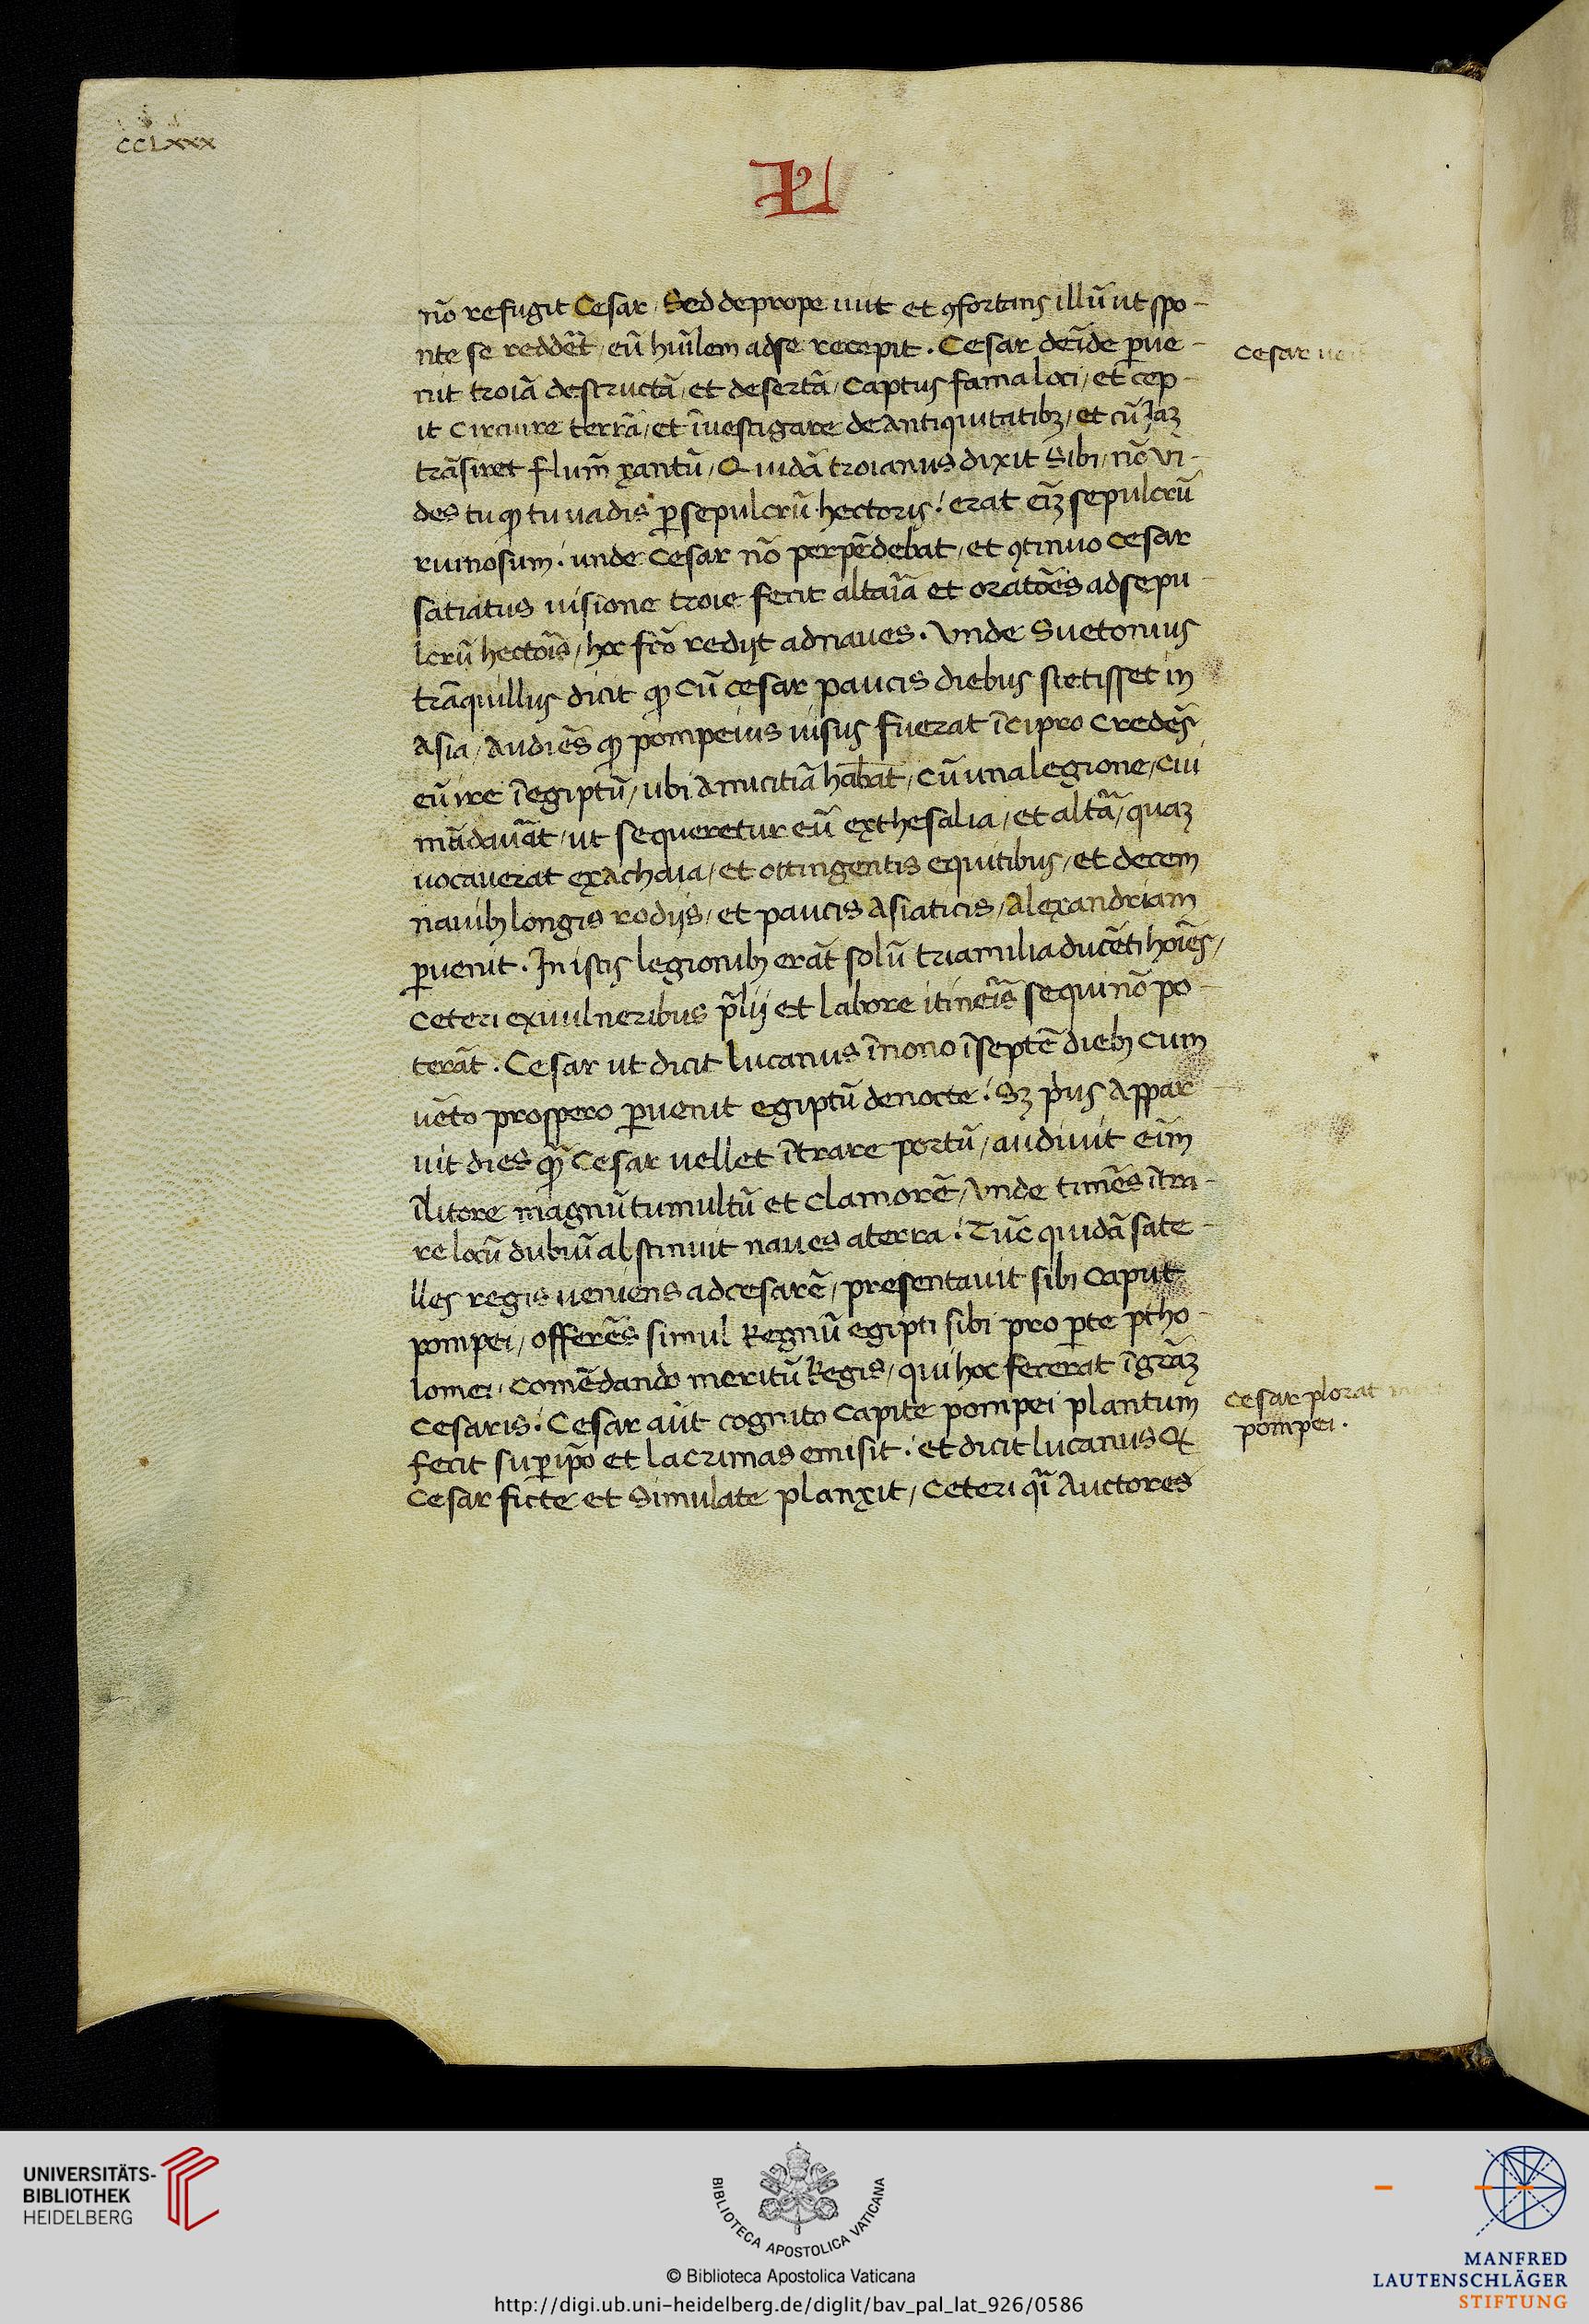 CCLxxx
nō refugit Cesar / Sed de prope uiit et ꝯfortans illū ut spo-
nte se reddēt / eū hūilem ad se recepit . Cesar deīde ꝑue-
nit troiā destructā / et desertā / Captus fama loci / et cep-
it Circuire terrā / et īuestigare de Antiquitatibꝫ / et cū Iaꝫ
trāsiret flum̄ xantū / Quidā troianus dixit Sibi / nō vi-
des tu qꝫ tu uadis ꝑ sepulcrū hectoris ! erat eīꝫ sepulcrū
ruinosum . unde Cesar nō perpēdebat / et ꝯtinuo Cesar
satiatus uisione troie fecit altaīa et oratōes ad sepu-
lcrū hectoīs / hoc fcō rediit ad naues . Vnde Suetonius
trāquillus dicit qꝫ Cū Cesar paucis diebus stetisset in
Asia / Audiēs qꝫ pompeius uisus fuerat ī cipro Credēs
eū ire ī egiptū / ubi Amicitiā habāt / Cū una legione / Cui
mādauāt / ut sequeretur eū ex thesalia / et altā / quaꝫ
uocauerat ex Achaia / et ottingentis equitibus / et decem
nauibꝫ longis rodiis / et paucis Asiaticis / Alexandriam
ꝑuenit . In istis legionibꝫ erāt solū tria milia ducēti hoīes /
Ceteri ex uulneribus p̄lii et labore itineīs sequi nō po-
terāt . Cesar ut dicit lucanus ī nono ī septē diebꝫ Cum
uēto prospero ꝑuenit egiptū de nocte ! Sꝫ pius Appar-
uit dies qꝫ̄ Cesar uellet ītrare portū / audiuit eīm
ī litore magnū tumultū et Clamorē / Vnde timēs ītra-
re locū dubiū abstinuit naues a terra ! Tūc quidā sate-
lles regis ueniens ad cesarē / presentauit sibi Caput
pompei / offerēs simul Regnū egipti sibi pro ꝑte ptho-
lomei / Comēdando meritū Regis / qui hoc fecerat ī grāꝫ
Cesaris . Cesar aūt cognito Capite pompei plantum
fecit suꝑ ipō et lacrimas emisit . et dicit lucanus qꝫ
Cesar ficte et Simulate planxit / Ceteri qī Auctores
Cesar
Cesar plorat
pompei .
UNIVERSITÄTS-
BIBLIOTHEK
HEIDELBERG
BIBLIOTECA APOSTOLICA VATICANA
© Biblioteca Apostolica Vaticana
http://digi.ub.uni-heidelberg.de/diglit/bav_pal_lat_926/0586
MANFRED
LAUTENSCHLÄGER
STIFTUNG